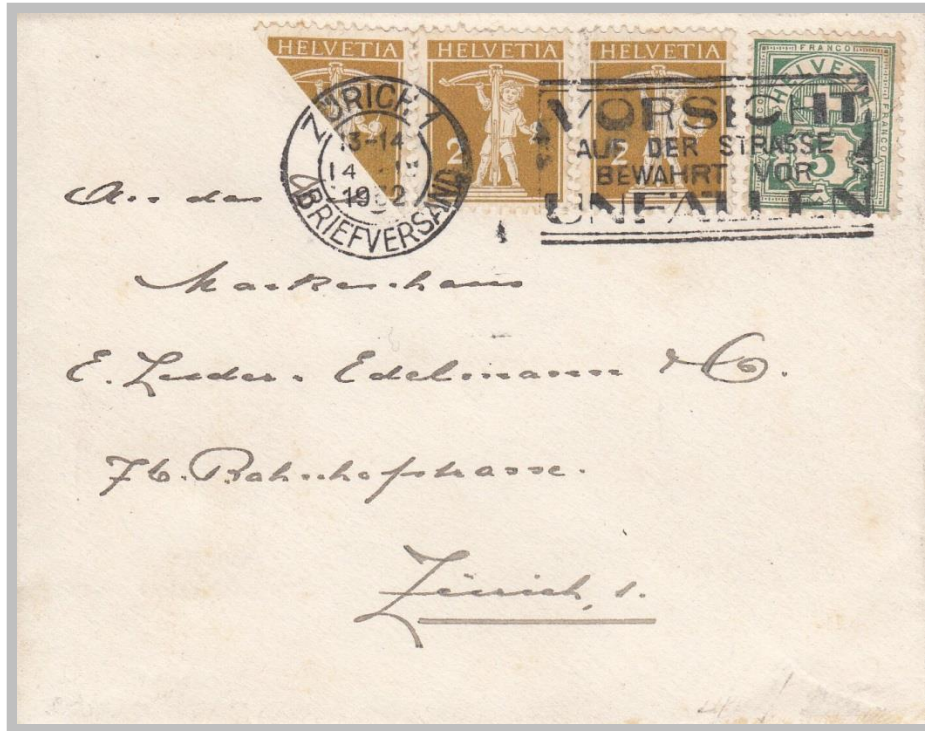 HELVETIA HELVETIA HELVETIA
2 2
FRANCO
HELVETIA
FRANCO
5
ZÜRICH 1
13-14
14
1932
BRIEFVERSAND
VORSICHT
AUF DER STRASSE
BEWAHRT VOR
UNFÄLLEN
An das
Markenhaus
E. Luder-Edelmann & Co.
76. Bahnhofstrasse.
Zürich, 1.